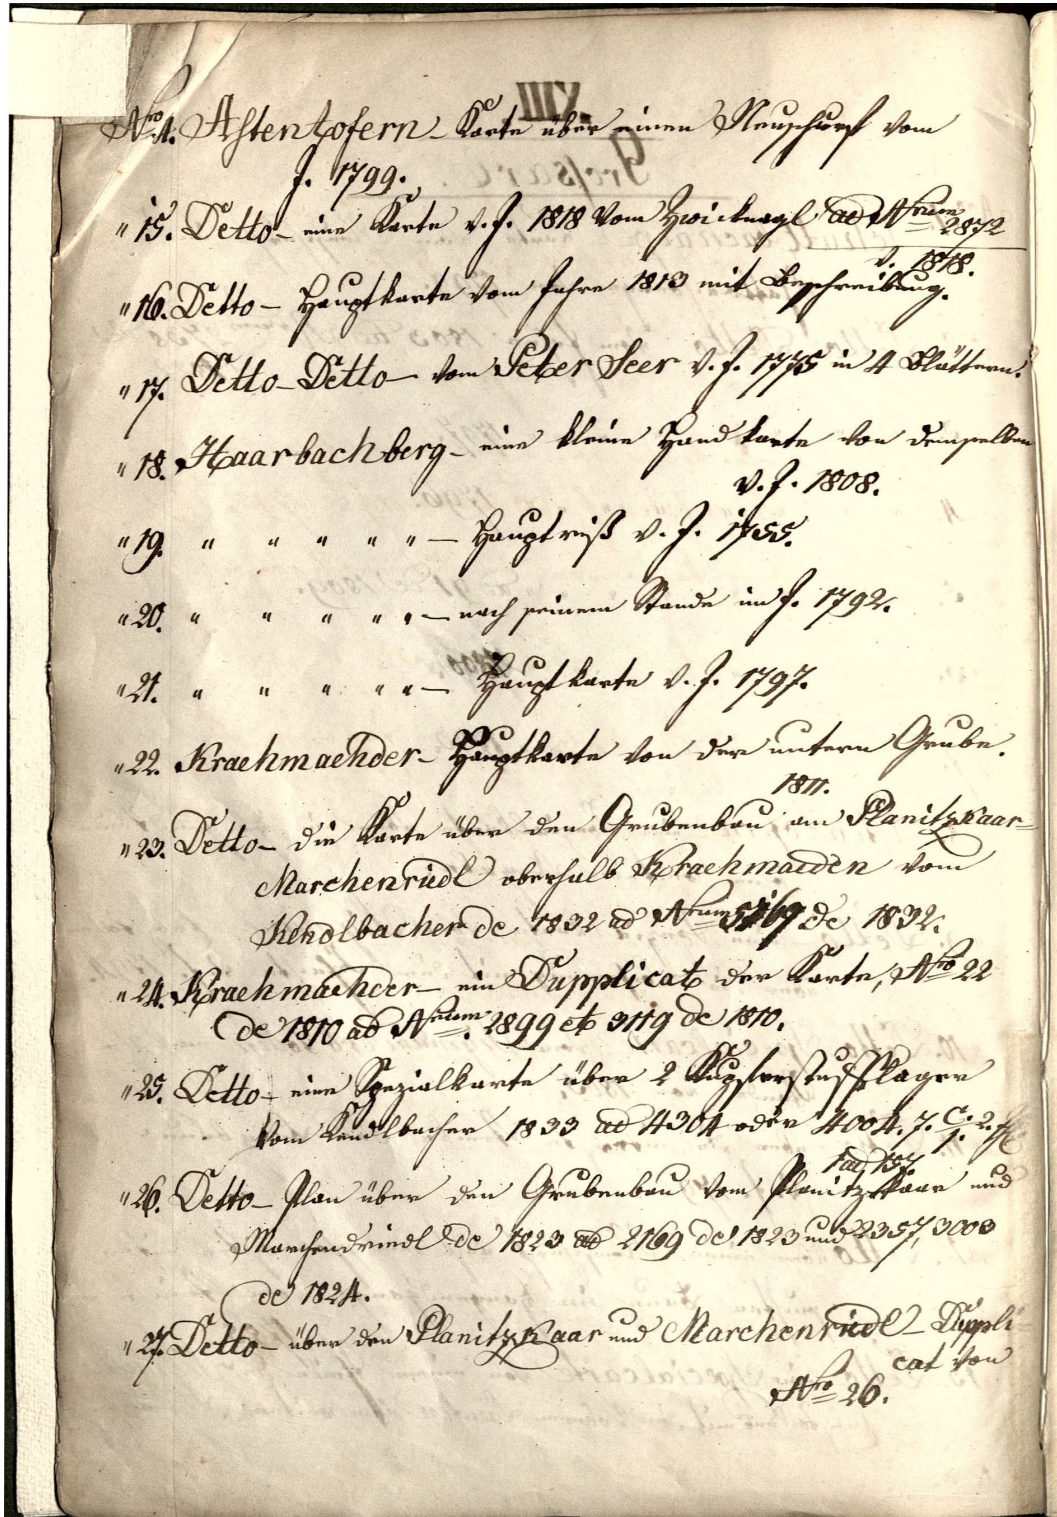 Nro 14. Astentofern – Karte über einen Neuschurf vom
J. 1799.
" 15. Detto – eine Karte v. J. 1818 vom Zwicknagl ad Nrum 2872
v. 1818.
" 16. Detto – Hauptkarte vom Jahre 1813 mit Beschreibung.
" 17. Detto – Detto – vom Peter Seer v. J. 1775 in 4 Blättern.
" 18. Haarbachberg – eine kleine Handkarte von demselben
v. J. 1808.
" 19. " " " " " – Hauptriß v. J. 1755.
" 20. " " " " " – nach seinem Stande im J. 1792.
" 21. " " " " " – Hauptkarte v. J. 1797.
" 22. Kraehmaehder – Hauptkarte von der untern Grube.
1811.
" 23. Detto – die Karte über den Grubenbau am Planitzkaar-
Marchenriedl oberhalb Kraehmaeden vom
Kendlbacher de 1832 ad Nrum 5769 de 1832.
" 24. Kraehmaehder – ein Dupplicat der Karte, Nro 22
de 1810 ad Nrum. 2899 et 3119 de 1810.
" 25. Detto – eine Spezialkarte über 2 Kupferstuffflager
vom Kendlbacher 1833 ad 4304 oder 4004. 7. C. 2.
fad. 157.
" 26. Detto – Plan über den Grubenbau vom Planitzkaar und
Marchendriedl de 1823 ad 2169 de 1823 und 2357, 3003
de 1824.
" 27. Detto – über den Planitzkaar und Marchenriedl – Duppli-
cat von
Nro 26.